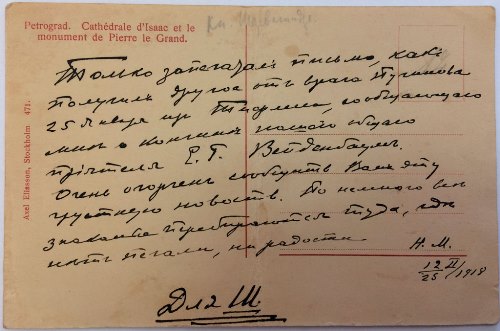 Petrograd. Cathédrale d'Isaac et le
monument de Pierre le Grand.
Axel Eliasson, Stockholm 471.
Только запечатал письмо, какъ
получилъ другое отъ врача
25 Января изъ Тифлиса, сообщающаго
мнѣ о кончинѣ нашего общаго
пріятеля Е. Г. Вейденбаумъ.
Очень огорченъ сообщить Вамъ эту
грустную новость. По немногу всѣ
знакомые перебираются туда, гдѣ
нѣтъ печали, ни радости
Н. М.
12/25 II 1918
Для Ш.